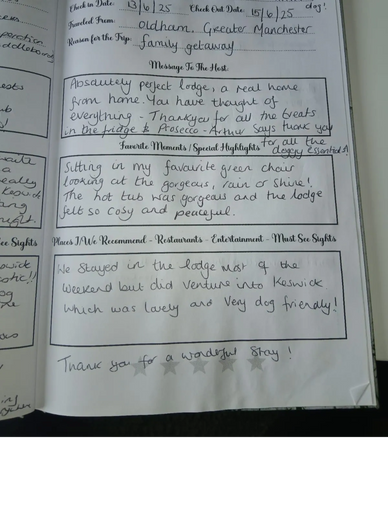 Check in Date: 13/6/25 Check Out Date: 15/6/25 dog!
Traveled From: Oldham, Greater Manchester
Reason for the Trip: family getaway
Message To The Host:
Absolutely perfect lodge, a real home
from home. You have thought of
everything - Thankyou for all the treats
in the fridge & Prosecco - Arthur says thank you
for all the
doggy essentials!
Favorite Moments / Special Highlights
Sitting in my favourite green chair
looking at the gorgeous, rain or shine!
The hot tub was gorgeous and the lodge
felt so cosy and peaceful.
Places I/We Recommend - Restaurants - Entertainment - Must See Sights
We stayed in the lodge most of the
weekend but did venture into Keswick
which was lovely and very dog friendly!
Thank you for a wonderful stay!
See Sights